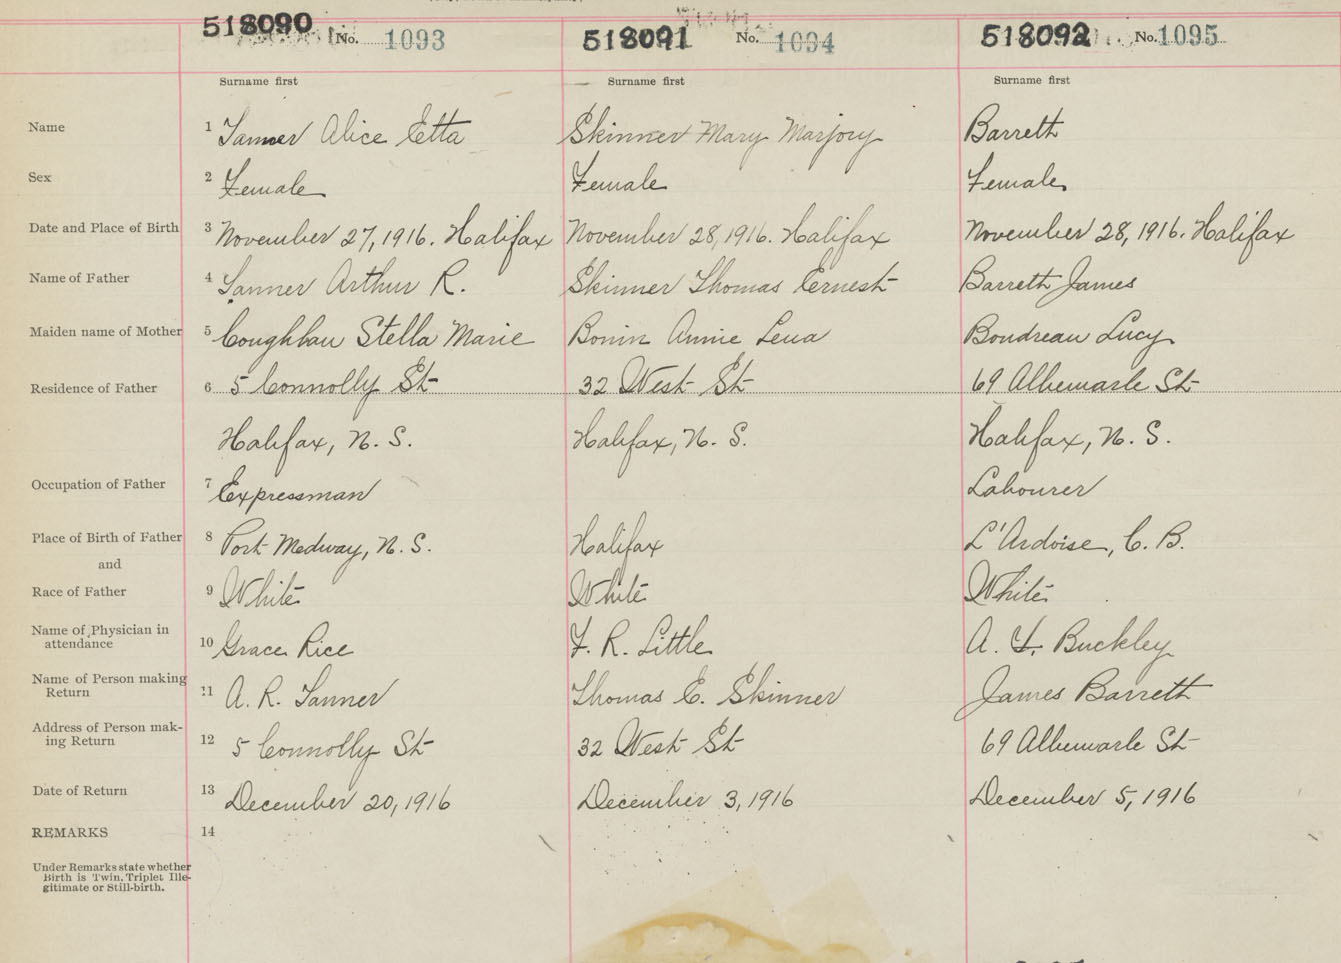 518090 No. 1093 518091 No. 1094 518092 No. 1095
Surname first Surname first Surname first
Name 1 Tanner Alice Etta Skinner Mary Marjory Barrett
Sex 2 Female Female Female
Date and Place of Birth 3 November 27, 1916. Halifax November 28, 1916. Halifax November 28, 1916. Halifax
Name of Father 4 Tanner Arthur R. Skinner Thomas Ernest Barrett James
Maiden name of Mother 5 Coughlan Stella Marie Bonin Annie Lena Boudreau Lucy
Residence of Father 6 5 Connolly St 32 West St 69 Albemarle St
Halifax, N. S. Halifax, N. S. Halifax, N. S.
Occupation of Father 7 Expressman Labourer
Place of Birth of Father 8 Port Medway, N. S. Halifax L'Ardoise, C. B.
and
Race of Father 9 White White White
Name of Physician in
attendance 10 Grace Rice F. R. Little A. F. Buckley
Name of Person making
Return 11 A. R. Tanner Thomas E. Skinner James Barrett
Address of Person mak-
ing Return 12 5 Connolly St 32 West St 69 Albemarle St
Date of Return 13 December 20, 1916 December 3, 1916 December 5, 1916
REMARKS 14
Under Remarks state whether
Birth is Twin, Triplet Ille-
gitimate or Still-birth.